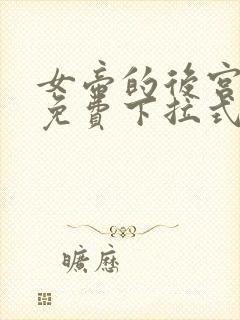 女帝的後宮
免費下拉式
曠曆